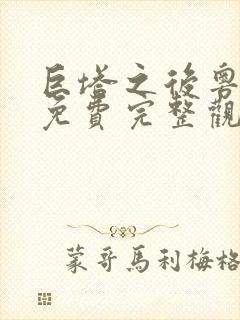 巨塔之後粵
免費完整觀
蒙哥馬利梅格